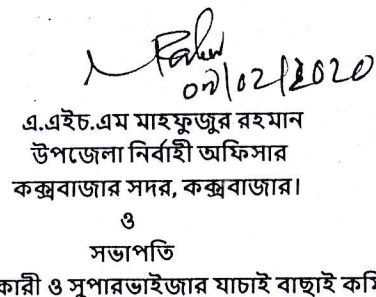 ০৩/০২/২০২০
এ.এইচ.এম মাহফুজুর রহমান
উপজেলা নির্বাহী অফিসার
কক্সবাজার সদর, কক্সবাজার।
ও
সভাপতি
কারী ও সুপারভাইজার যাচাই বাছাই কমি